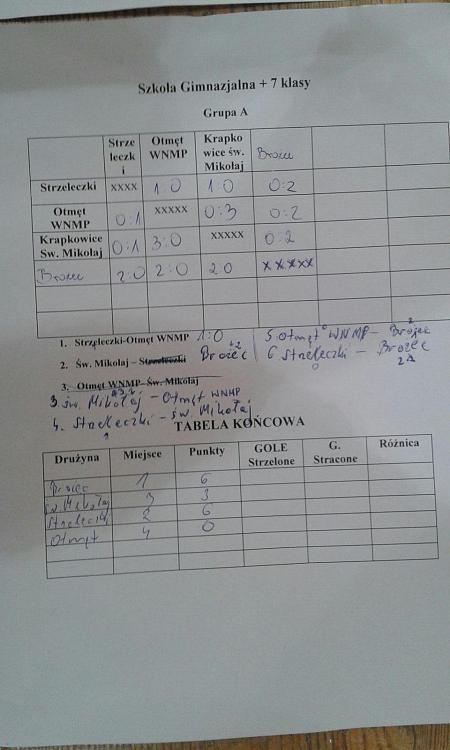 Szkoła Gimnazjalna + 7 klasy
Grupa A
Strzeleczki Otmęt WNMP Krapkowice św. Mikołaj Brożec
Strzeleczki XXXX 1:0 1:0 0:2
Otmęt WNMP 0:1 XXXXX 0:3 0:2
Krapkowice Św. Mikołaj 0:1 3:0 XXXXX 0:2
Brożec 2:0 2:0 2:0 XXXXX
1. Strzeleczki-Otmęt WNMP 1:0
2. Św. Mikołaj – Strzeleczki Brożec
3. Otmęt WNMP–Św. Mikołaj
3. św. Mikołaj - Otmęt WNMP
4. Strzeleczki - św. Mikołaj
5 Otmęt WNMP - Brożec
6 Strzeleczki - Brożec
TABELA KOŃCOWA
Drużyna Miejsce Punkty GOLE Strzelone G. Stracone Różnica
Brożec 1 6
św Mikołaj 3 3
Strzeleczki 2 6
Otmęt 4 0